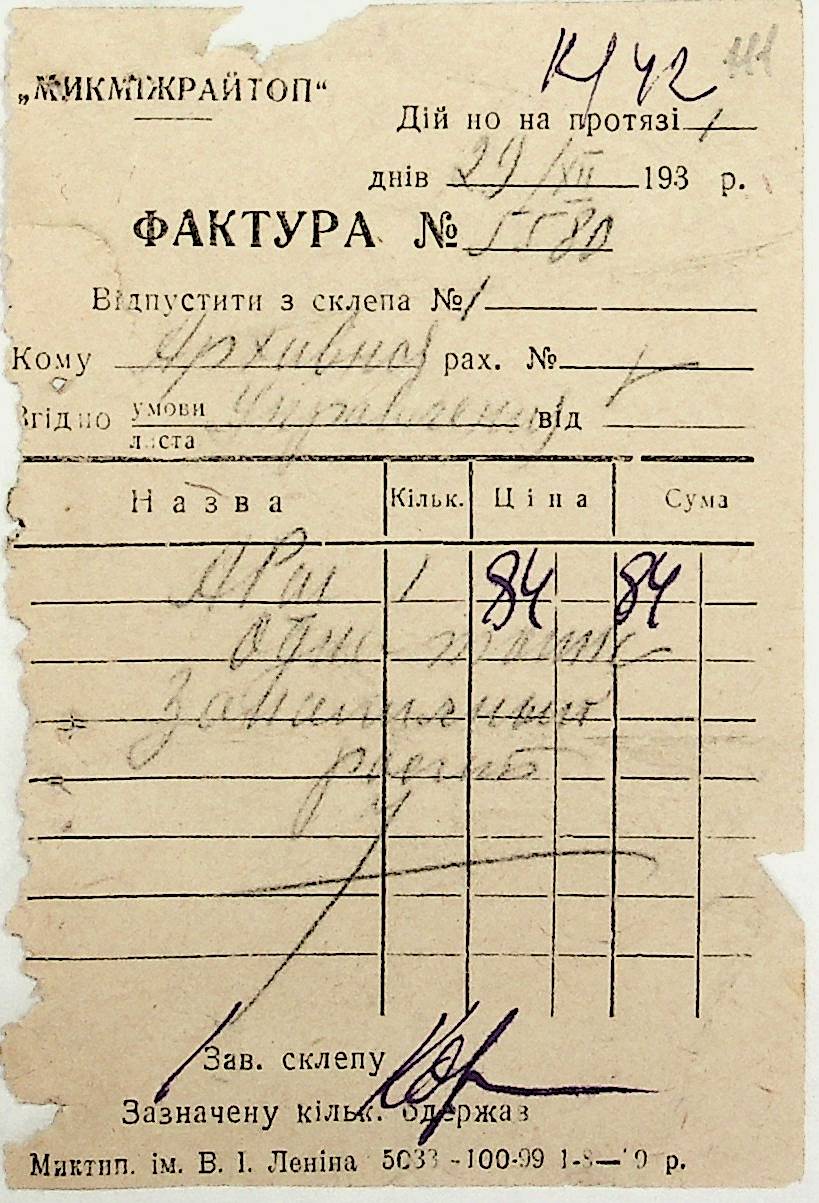 К/42 111
„МИКМІЖРАЙТОП“
Дій но на протязі 1
днів 29/XII 193 р.
ФАКТУРА № 5580
Відпустити з склепа № 1
Кому Архивное рах. №
Згідно умови листа Управление від
Назва Кільк. Ціна Сума
1 84 84
Зав. склепу
Зазначену кільк. одержав
Миктип. ім. В. І. Леніна 5033-100-99 1-8—